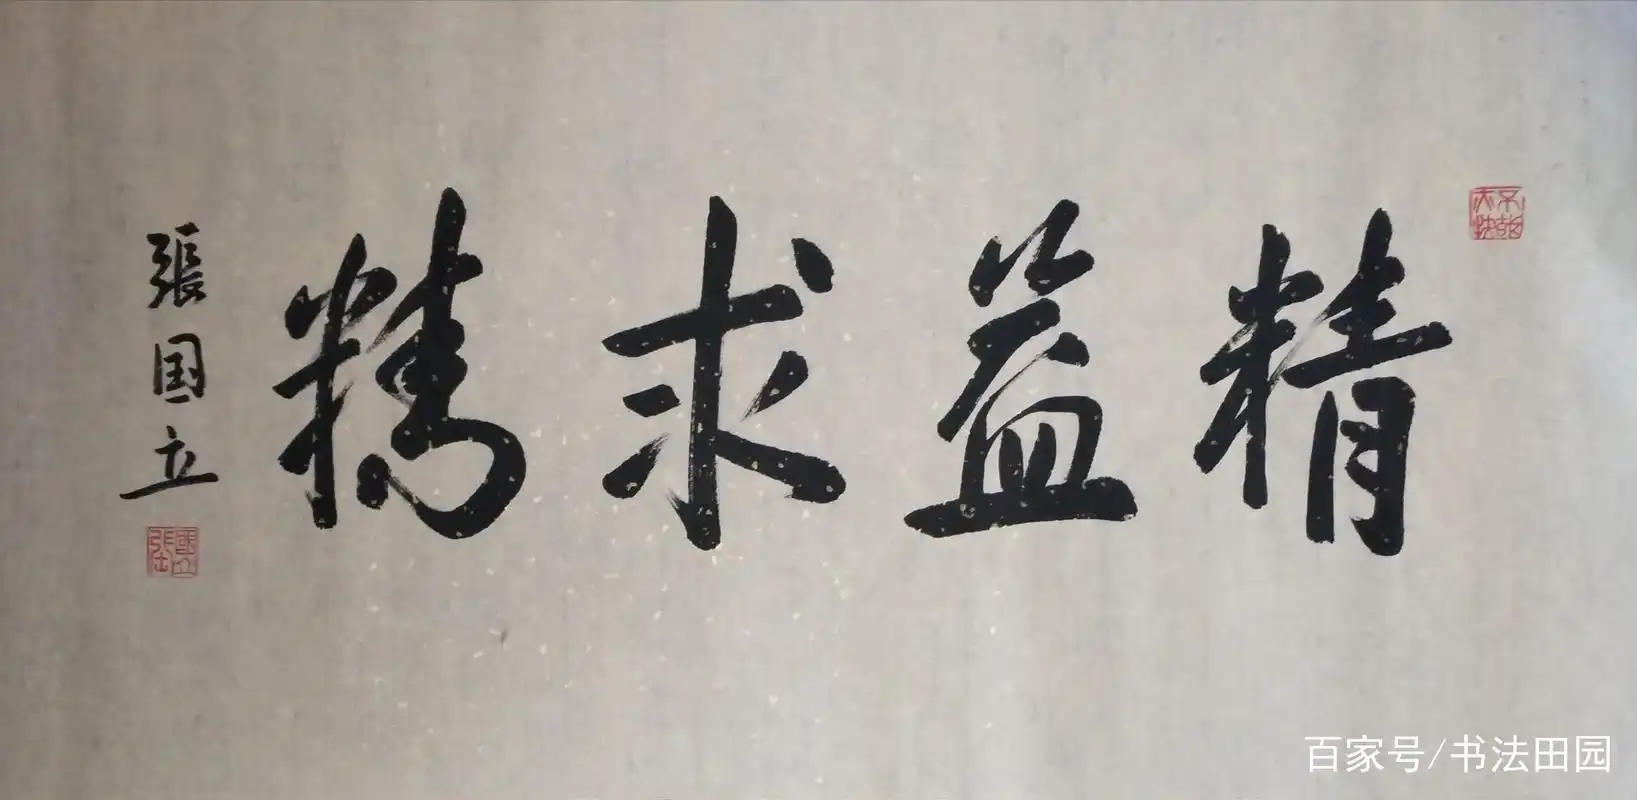 精益求精
張国立
百家号/书法田园